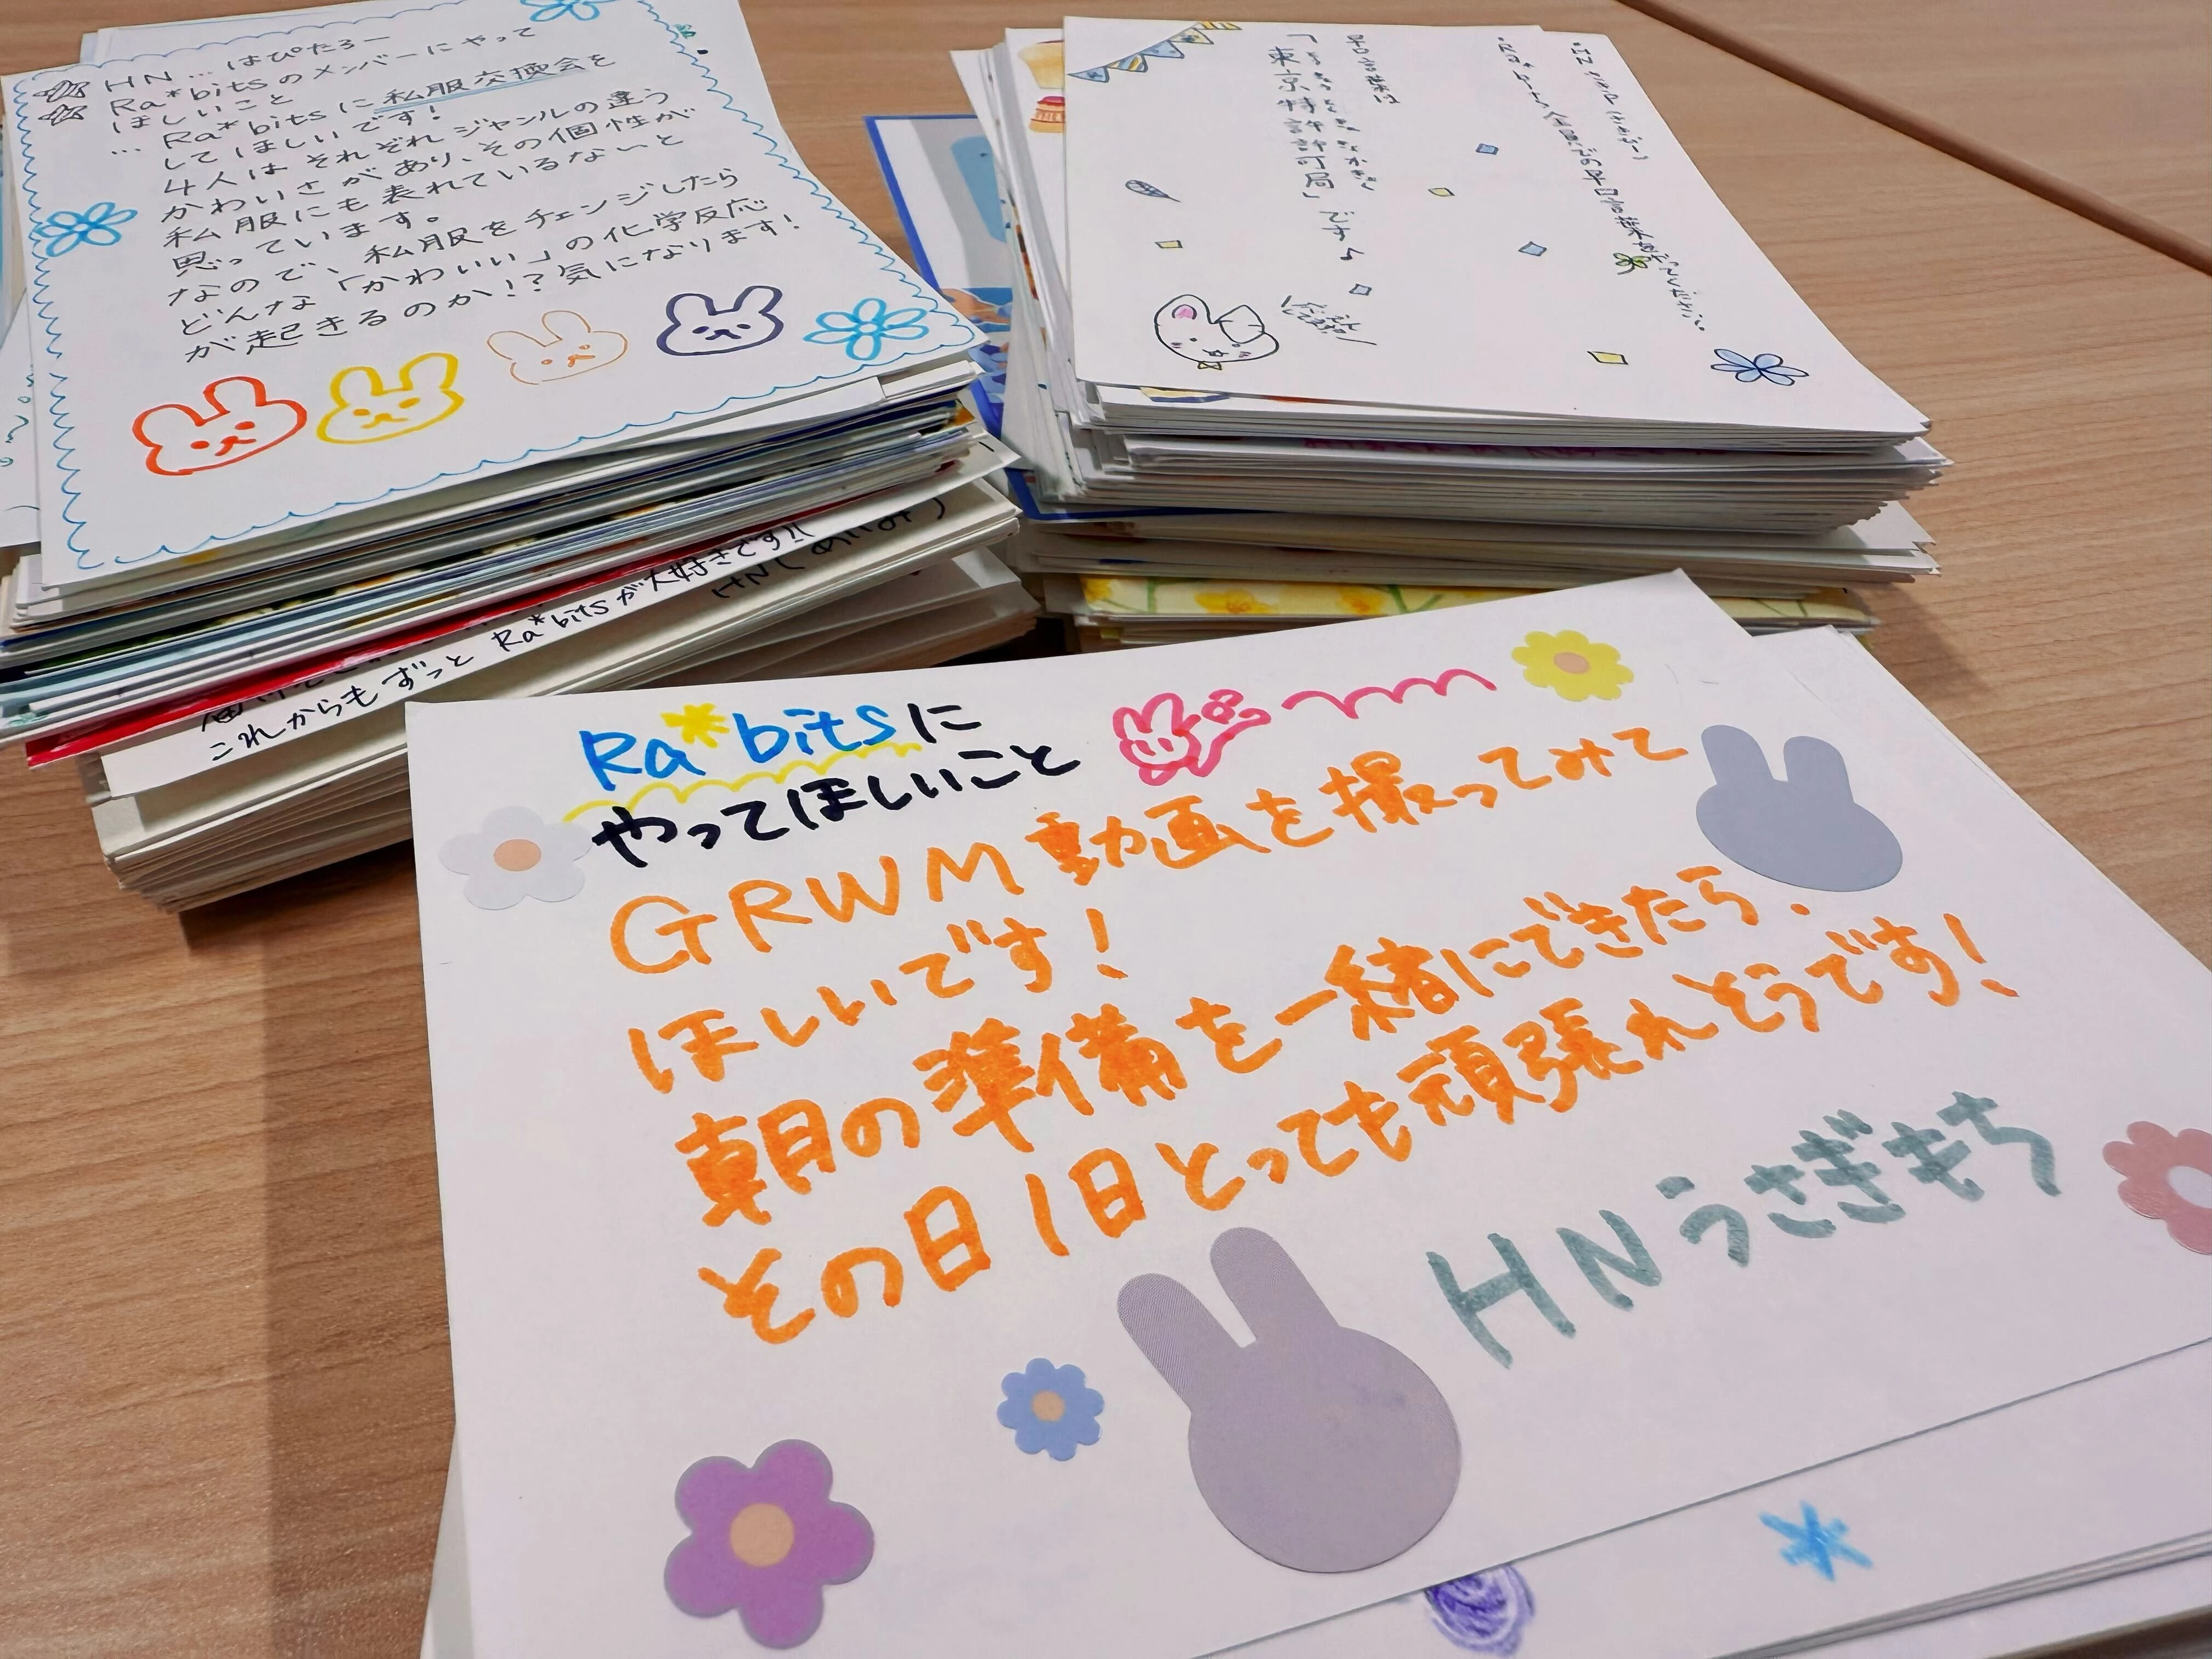 HN…はぴたろー
Ra*bitsのメンバーにやって
ほしいこと
…Ra*bitsに私服交換会を
してほしいです!
4人はそれぞれジャンルの違う
かわいさがあり、その個性が
私服にも表れているないと
思っています。
なので、私服をチェンジしたら
どんな「かわいい」の化学反応
が起きるのか!?気になります!
これからもずっとRa*bitsが大好きです!!
早口言葉は
東京特許許可局」です♪
Ra*bitsに
やってほしいこと
GRWM動画を撮ってみて
ほしいです!
朝の準備を一緒にできたら、
その日1日とっても頑張れそうです!
HNうさぎもち